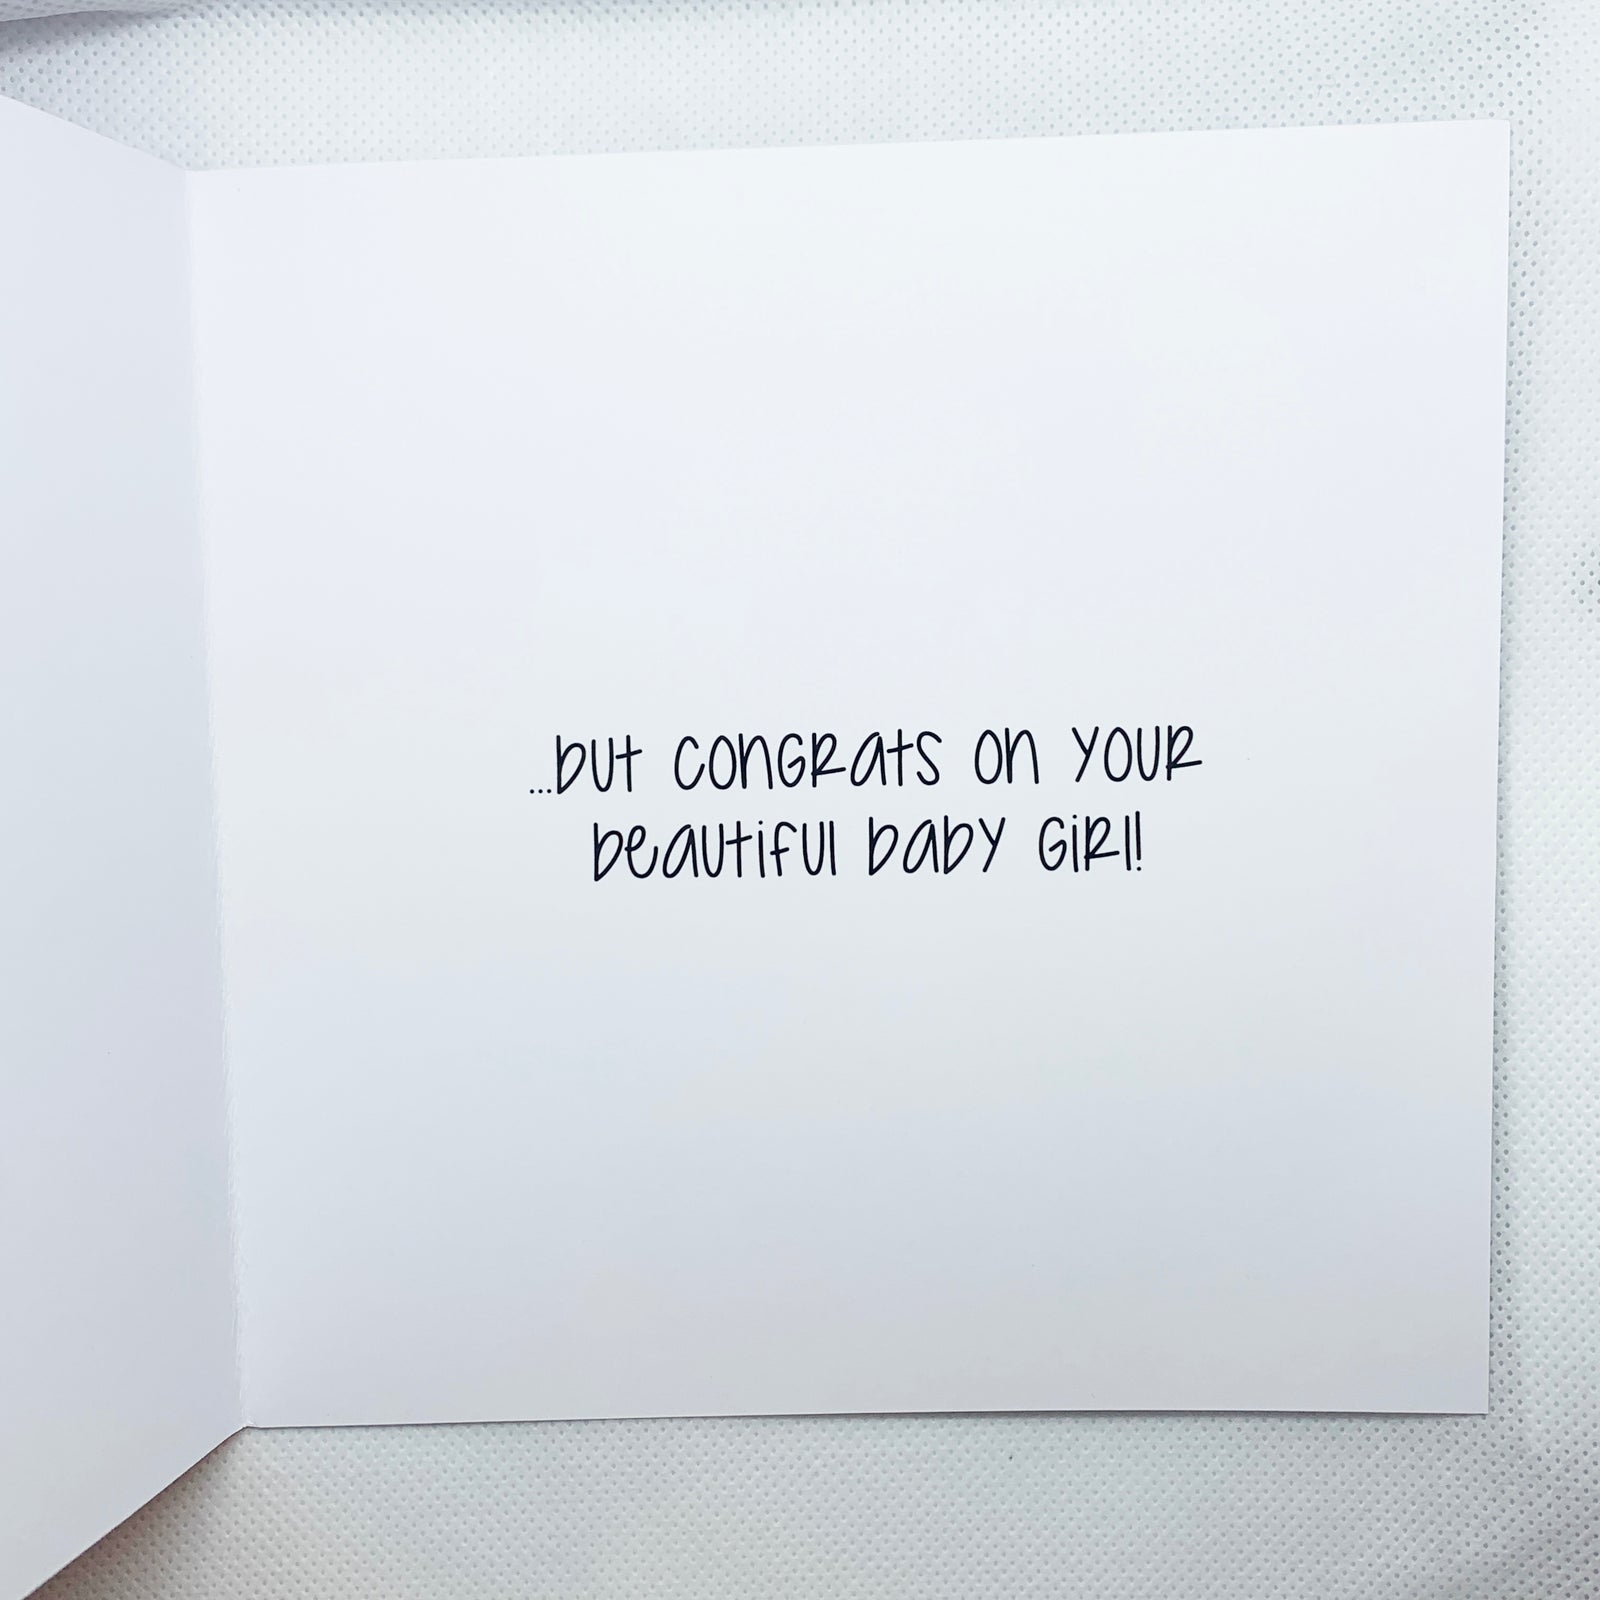 ...but congrats on your
beautiful baby girl!